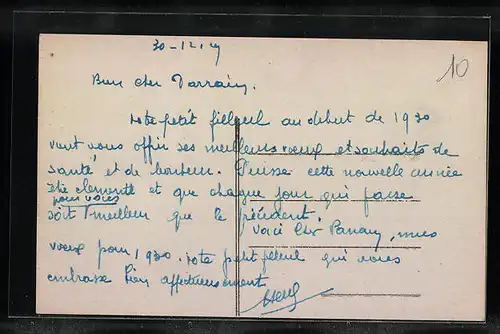 30-12-29
10
Bien cher Parrain,
votre petit filleul au debut de 1930
veut vous offrir ses meilleurs voeux et souhaits de
santé, et de bonheur. Puisse cette nouvelle année
être clemente et que chaque jour qui passe
pour vous
soit meilleur que le précédent.
Voici Cher Parrain, mes
voeux pour 1930. votre petit filleul qui vous
embrasse bien affectueusement